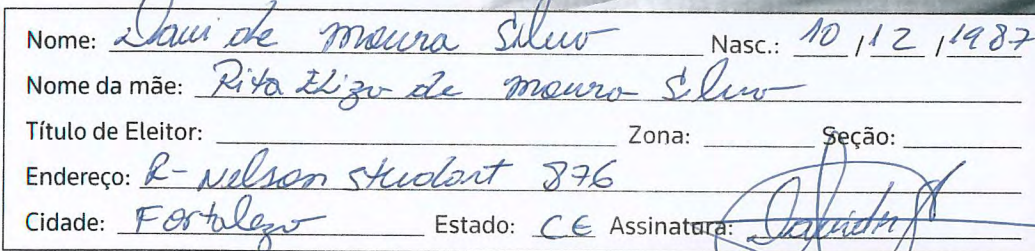 Nome: Davi de Moura Silva Nasc.: 10/12/1987
Nome da mãe: Rita Eliza de Moura Silva
Título de Eleitor: Zona: Seção:
Endereço: R- Nelson Studart 876
Cidade: Fortaleza Estado: CE Assinatura: